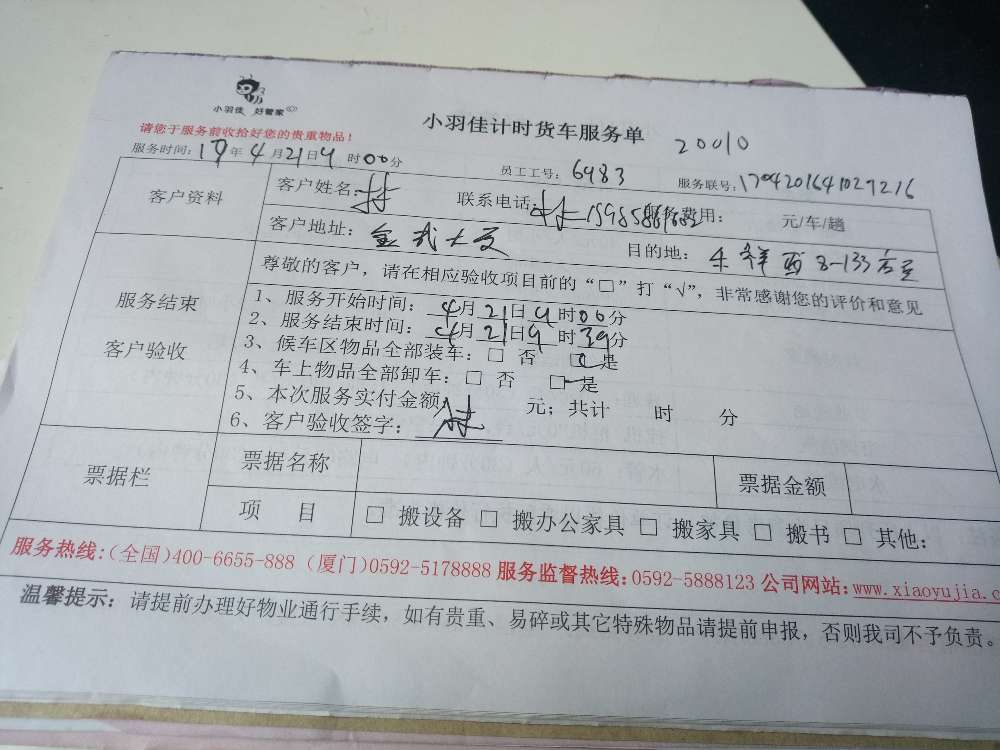 小羽佳 好管家
小羽佳计时货车服务单
20010
请您于服务前收拾好您的贵重物品！
服务时间：17年4月21日9时00分 员工工号：6483 服务联号：1704201641029216
客户资料
客户姓名：林 联系电话： 服务费用： 元/车/趟
客户地址： 目的地：
服务结束
客户验收
尊敬的客户，请在相应验收项目前的“□”打“√”，非常感谢您的评价和意见
1、服务开始时间：4月21日9时00分
2、服务结束时间：4月21日9时39分
3、候车区物品全部装车：□ 否 □ 是
4、车上物品全部卸车：□ 否 □ 是
5、本次服务实付金额 元；共计 时 分
6、客户验收签字：林
票据栏
票据名称 票据金额
项 目 □ 搬设备 □ 搬办公家具 □ 搬家具 □ 搬书 □ 其他：
服务热线：(全国)400-6655-888 (厦门)0592-5178888 服务监督热线：0592-5888123 公司网站：www.xiaoyujia.c
温馨提示：请提前办理好物业通行手续，如有贵重、易碎或其它特殊物品请提前申报，否则我司不予负责。